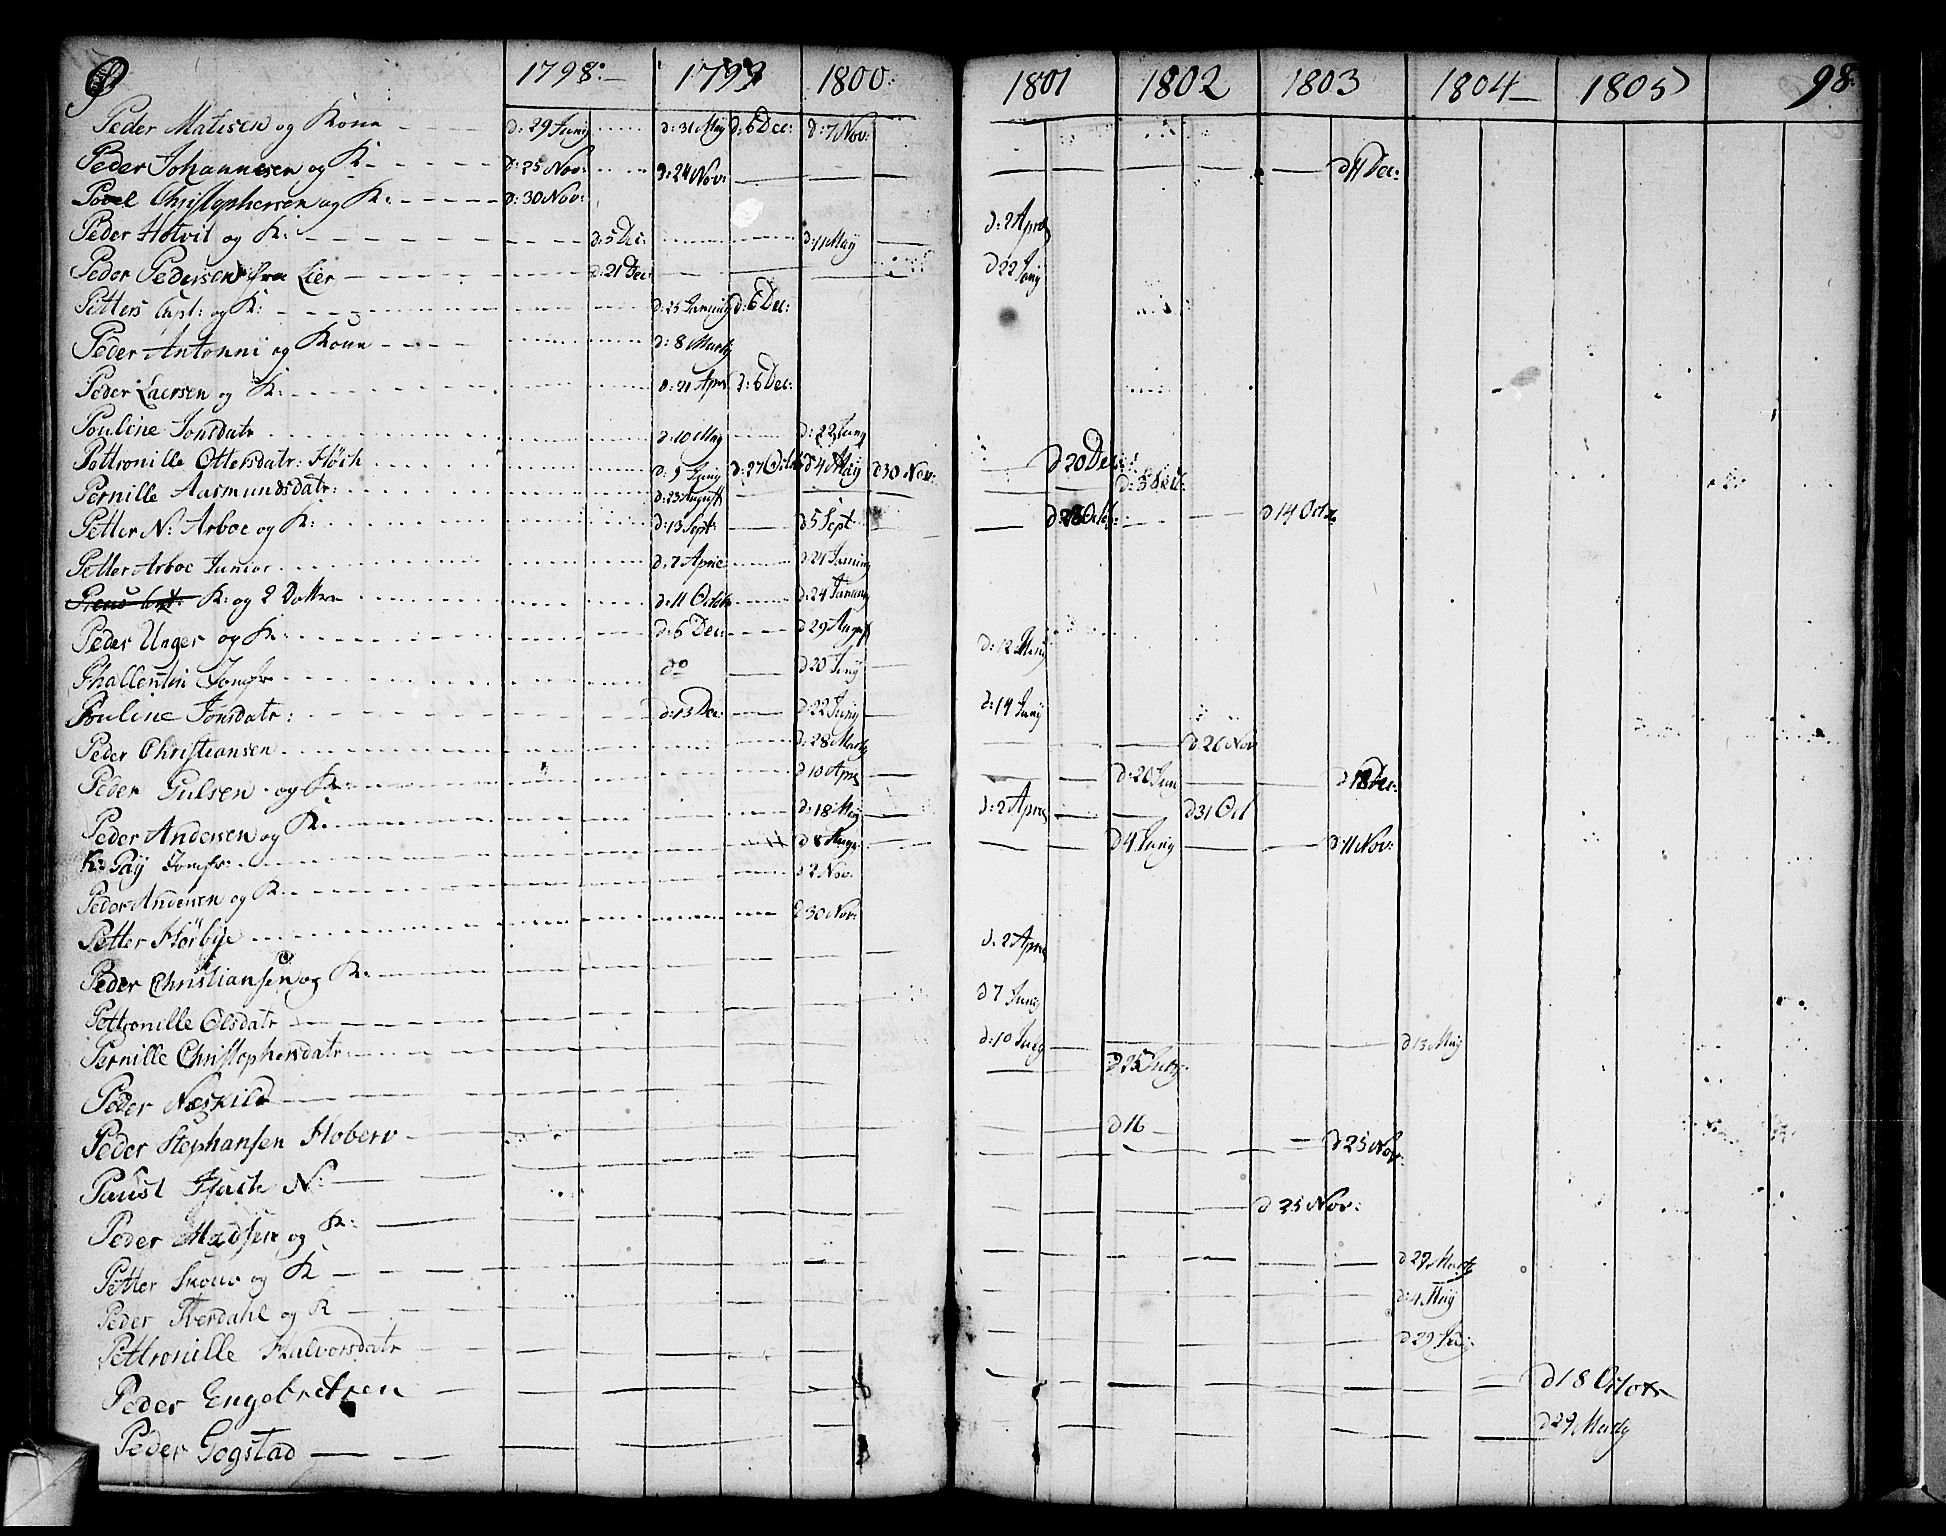 1798. 1799 1800. 1801 1802 1803 1804 1805 98.
Peder Matisen og Kone d: 29 Junij d: 31 Maij d: 6 Dec: d: 7 Nov:
Peder Johannesen og K d: 25 Nov: d: 24 Nov: d 11 Dec:
Povel Christophersen og K: d: 30 Nov:
Peder Hotvit og K: d: 5 Dec: d: 11 Maij d: 2 Apr
Peder Pedersen fra Lier d: 21 Dec: d 22 Junij
Petters og K: d: 6 Dec:
Peder Antonni og Kone d: 8 Marty
Peder Laersen og K: d: 21 Apr d: 6 Dec:
Pouline Jonsdatr d: 10 Maij d: 22 Junij
Pettronille Ottersdatr: Höeh d: 9 Junij d: 27 Octb d 4 Maij d 30 Nov: d 20 Dec:
Pernille Aasmundsdatr: d: 23 August
Petter N: Arboe og K: d: 13 Sept: d 5 Sept d 14 Octr
Petter Arboe Junior d: 7 Apriel d: 24
K: og 2 Dottre d: 11 Octb d: 24
Peder Unger og K: d: 6 Dec: d: 29 August d: 12 Maij
Phallentin Jomfr do d 20 Junij
Pouline Jonsdatr: d: 13 Dec: d: 22 Junij d: 14 Junij
Peder Christiansen d: 28 Marty d 26 Nov
Peder Gulsen og K: d 10 Apr d: 20 Jun
Peder Andersen og K. d: 18 Maij d: 2 Apr d 31 Oct
K: Paij Jomfr: d 8 d 4 Junij d 11 Nov:
Peder Andersen og K: d 2 Nov:
Petter Hörbye d 30 Nov:
Peder Christiansen og K: d: 2 Apr
Pettronille Olsdatr d 7 Junij
Pernille Christophersdatr: d: 10 Junij d 13 Maij
Peder Næskild d 25 July
Peder Stephansen Hoberv d 16 d 25 Nov:
N: d 25 Nov:
Peder Madsen og K:
Petter og K d 27 Marty
Peder Sverdahl og K d: 4 Maij
Pettronille Halvorsdatr d 29
Peder Engebretsen d 18 Octobr
Peder Gogstad d 29 Marty